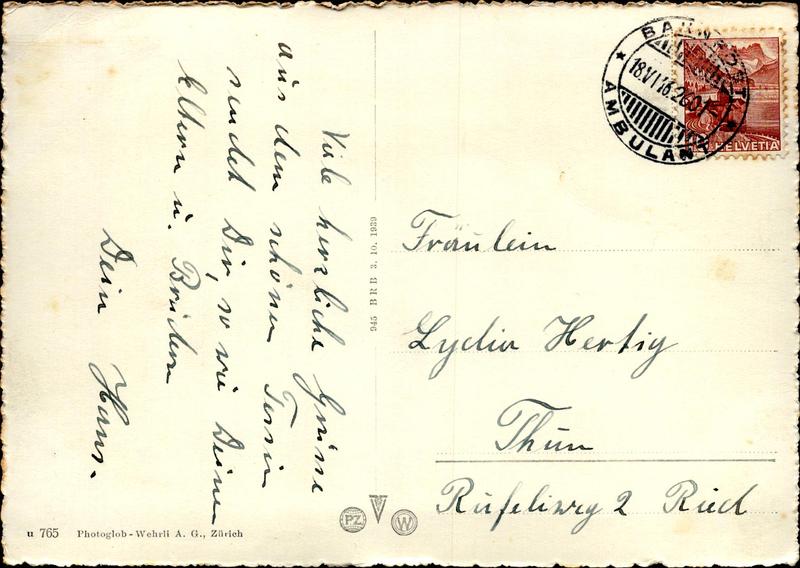 Viele herzliche Grüsse
aus dem schönen Tessin
sendet Dir, so wie Deinen
Eltern u. Brüdern
Dein Hans.
945 BRB 3. 10. 1939
BAHNPOST
18.VI
AMBULANT
HELVETIA
Fräulein
Lydia Hertig
Thun
Rufeliweg 2 Ried
PZ W
u 765 Photoglob-Wehrli A. G., Zürich